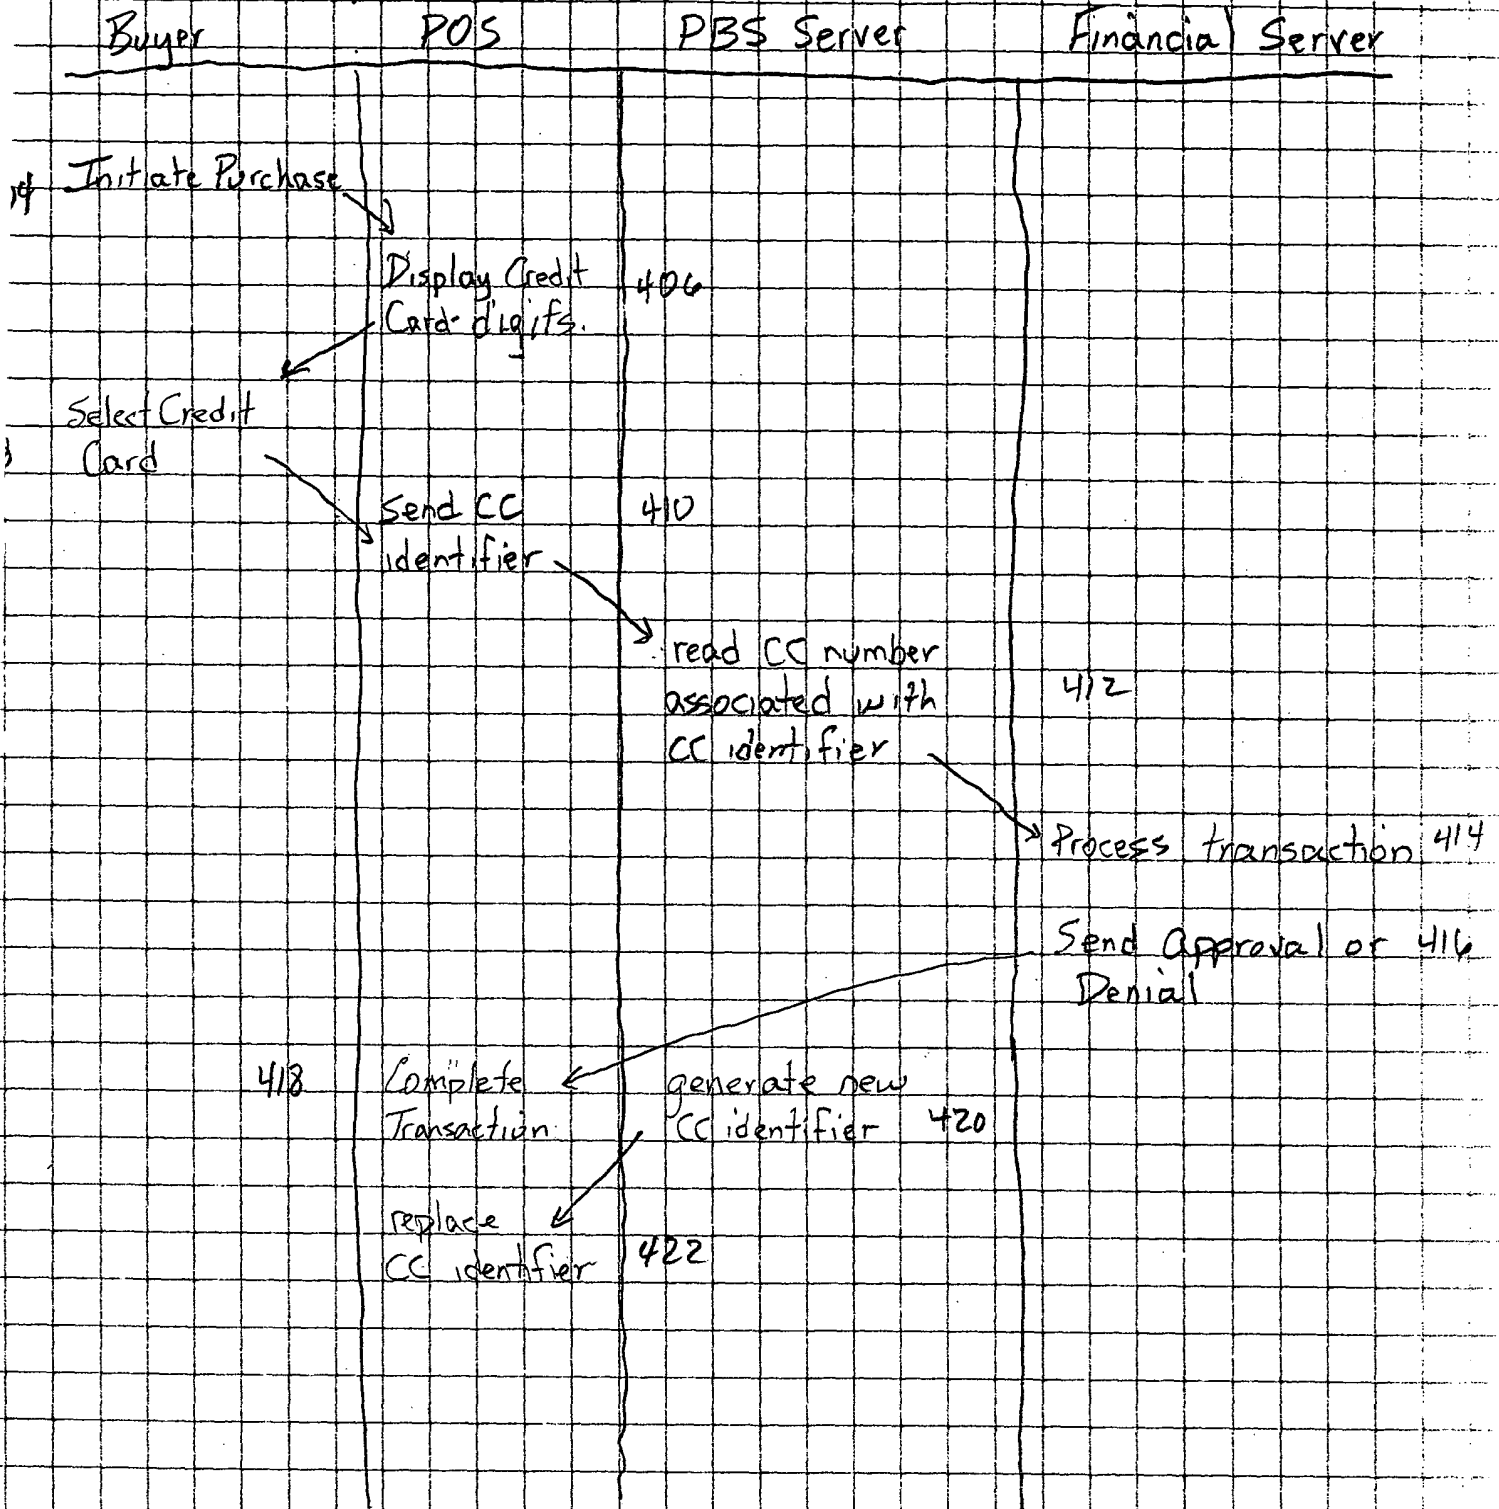 Buyer POS PBS Server Financial Server
Initiate Purchase
Display Credit 406
Card digits.
Select Credit
Card
Send CC 410
identifier
read CC number
associated with 412
CC identifier
Process transaction 414
Send Approval or 416
Denial
418 Complete generate new
Transaction CC identifier 420
replace
CC identifier 422